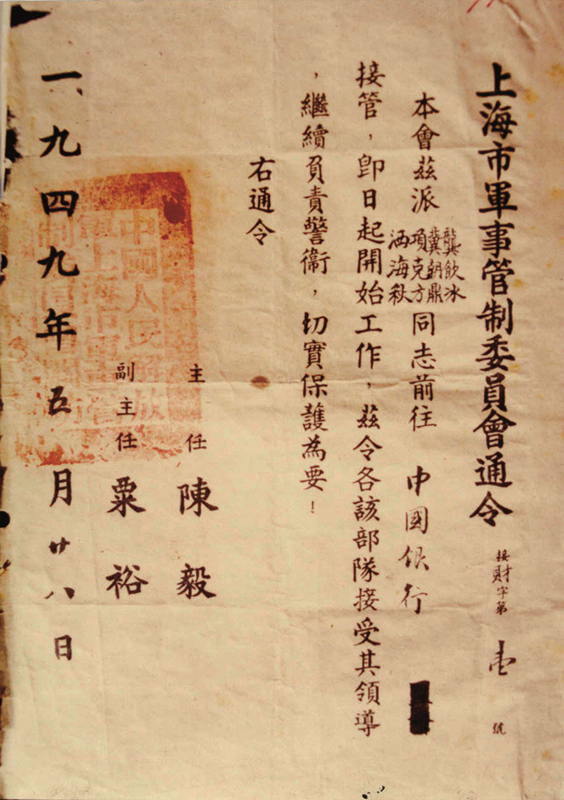 上海市軍事管制委員會通令 接財字第壹號
本會茲派 龔飲冰 冀朝鼎 項克方 洒海秋 同志前往 中國銀行
接管，卽日起開始工作，茲令各該部隊接受其領導
，繼續負責警衞，切實保護為要！
右通令
主任 陳毅
副主任 粟裕
一九四九年五月廿八日